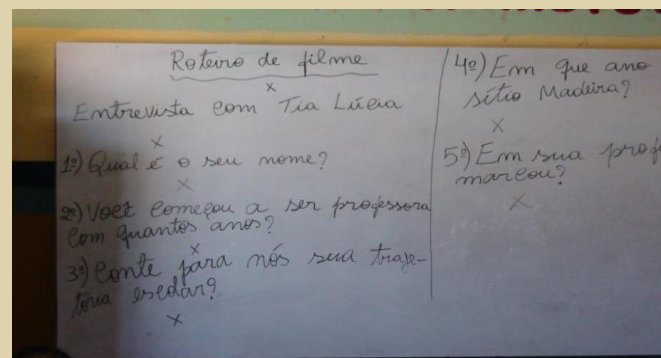 Roteiro de filme
x
Entrevista com Tia Lúcia
x
1º) Qual é o seu nome?
x
2º) Você começou a ser professora
com quantos anos?
x
3º) Conte para nós sua traje-
tória escolar?
x
4º) Em que ano
sítio Madeira?
x
5º) Em sua prof
marcou?
x